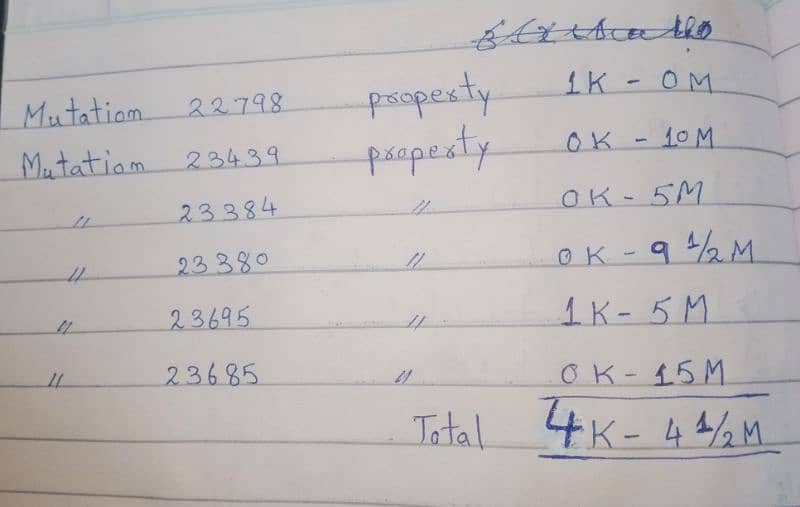 Mutation 22798 property 1K - 0M
Mutation 23439 property 0K - 10M
〃 23384 〃 0K - 5M
〃 23380 〃 0K - 9 1/2 M
〃 23695 〃 1K - 5M
〃 23685 〃 0K - 15M
Total 4K - 4 1/2 M